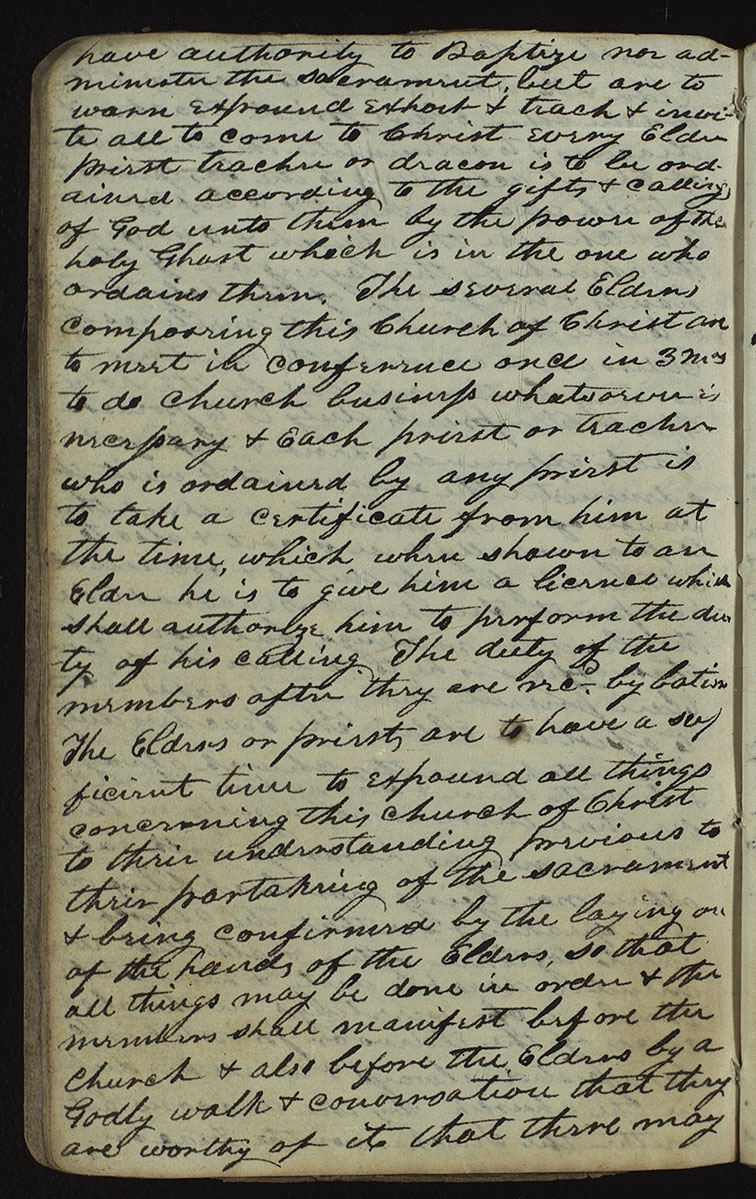 have authority to Baptize nor ad-
minister the sacrament, but are to
warn expound exhort & teach & invi-
te all to come to Christ every Elder
priest teacher or deacon is to be ord-
ained according to the gifts & callings
of God unto them by the power of the
holy Ghost which is in the one who
ordains them. The several Elders
composing this Church of Christ are
to meet in conference once in 3 mos
to do church business whatsoever is
necessary & Each priest or teacher
who is ordained by any priest is
to take a certificate from him at
the time, which when shown to an
Elder he is to give him a licence which
shall authorize him to perform the du-
ty of his calling The duty of the
members after they are recd. by batism
The Elders or priests are to have a suf
ficient time to expound all things
concerning this church of Christ
to their understanding previous to
their partaking of the sacrament
& being confirmed by the laying on
of the hands of the Elders, so that
all things may be done in order & the
members shall manifest before the
Church & also before the Elders by a
Godly walk & conversation that they
are worthy of it that there may